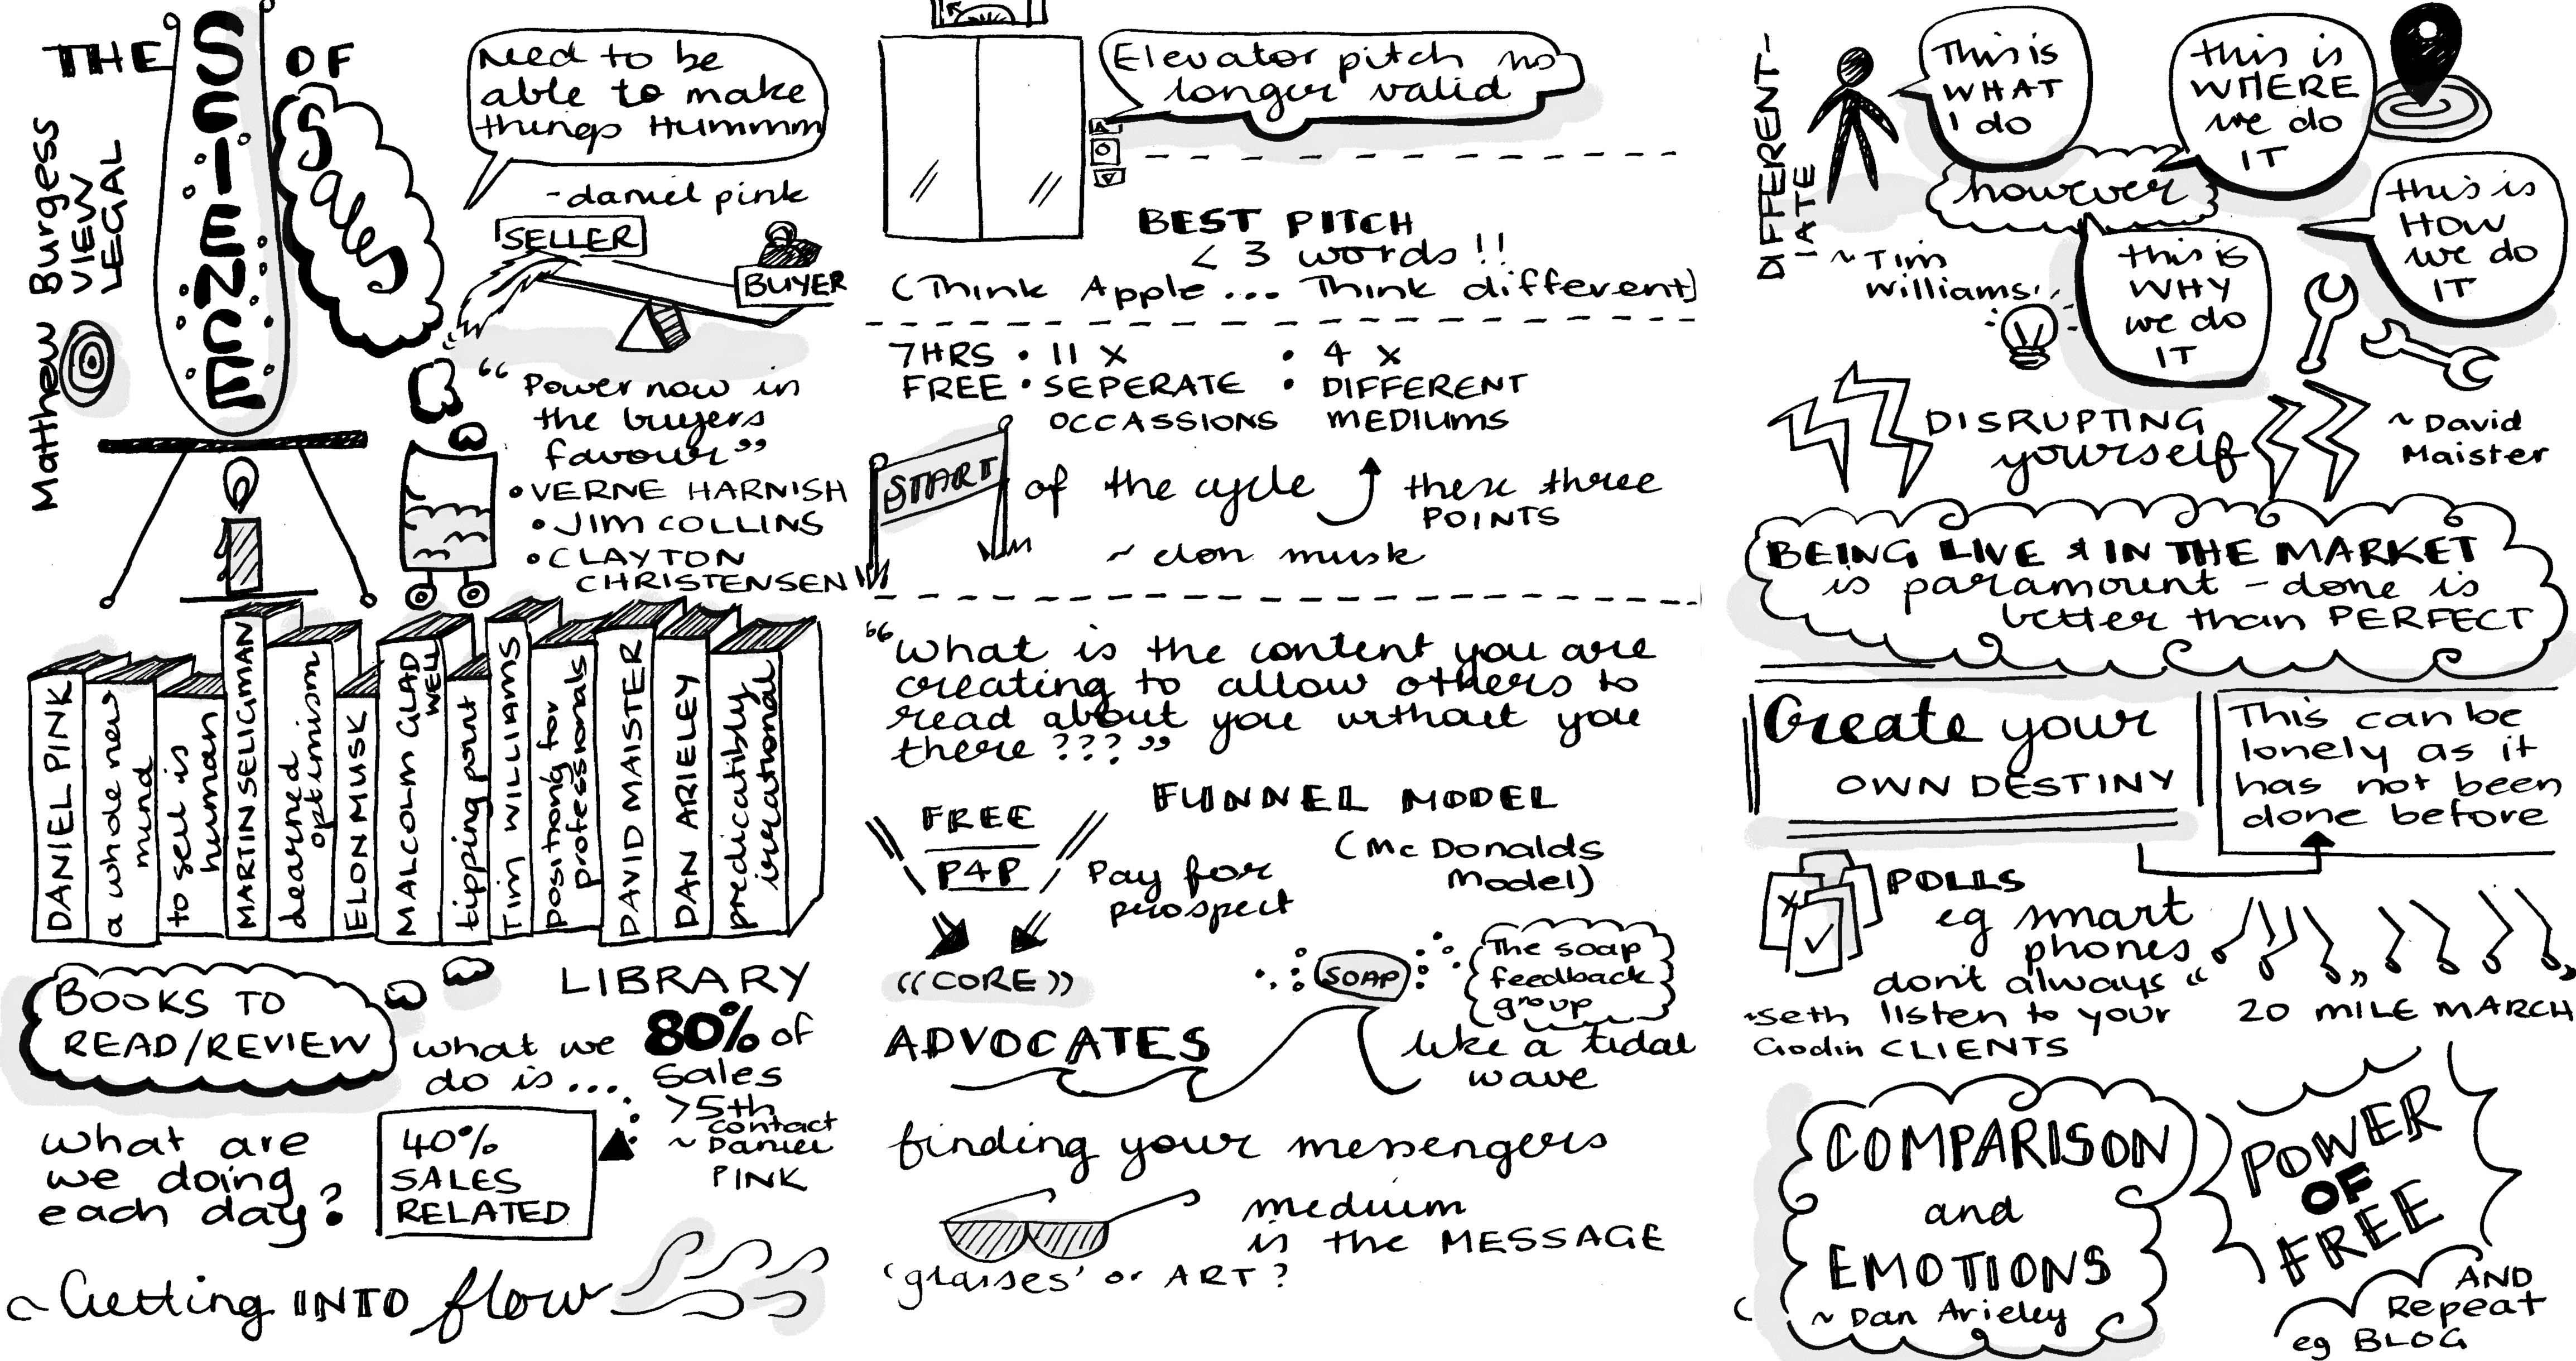 THE SCIENCE OF
Sales
Matthew Burgess
VIEW
LEGAL
Need to be
able to make
things Hummm
- daniel pink
SELLER
BUYER
"Power now in
the buyers
favour"
• VERNE HARNISH
• JIM COLLINS
• CLAYTON
CHRISTENSEN
DANIEL PINK
a whole new
mind
to sell is
human
MARTIN SELIGMAN
learned
optimism
ELON MUSK
MALCOLM GLAD
WELL
tipping point
Tim WILLIAMS
positiong for
professionals
DAVID MAISTER
DAN ARIELEY
predicatibly
irrational
LIBRARY
BOOKS TO
READ/REVIEW
what we
do is...
80% of
sales
>5th
contact
~ Daniel
PINK
what are
we doing
each day?
40%
SALES
RELATED
~ Getting INTO flow
Elevator pitch no
longer valid
BEST PITCH
< 3 words!!
(Think Apple... Think different)
7HRS • 11 X • 4 X
FREE • SEPERATE • DIFFERENT
OCCASSIONS MEDIUMS
START of the cycle these three
POINTS
~ elon musk
"What is the content you are
creating to allow others to
read about you without you
there???"
FUNNEL MODEL
(McDonalds
Model)
FREE
P4P
Pay for
prospect
((CORE))
SOAP
The soap
feedback
group
ADVOCATES
like a tidal
wave
finding your messengers
medium
is the MESSAGE
'glasses' or ART?
DIFFERENT-
IATE
This is
WHAT
I do
this is
WHERE
we do
IT
however
~ Tim
Williams
this is
WHY
we do
IT
this is
HOW
we do
IT
DISRUPTING
yourself
~ David
Maister
BEING LIVE & IN THE MARKET
is paramount - done is
better than PERFECT
Create your
OWN DESTINY
This can be
lonely as it
has not been
done before
POLLS
eg smart
phones
don't always
listen to your
CLIENTS
~ Seth
Godin
" "
20 MILE MARCH
COMPARISON
and
EMOTIONS
~ Dan Arieley
POWER
OF
FREE
AND
Repeat
eg BLOG